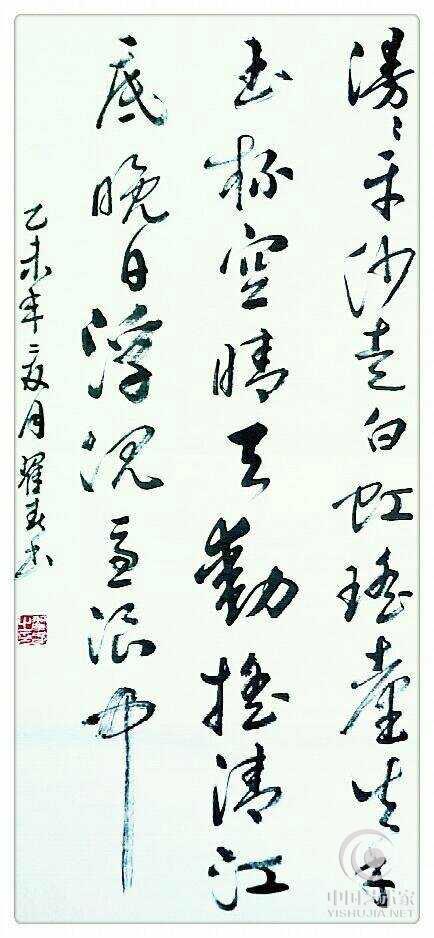 漫漫平沙走白虹瑶臺失手
玉杯空晴天動摇清江
底晚日浮沉急浪中
乙未年夏月耀春书
中国艺术家
YISHUJIA.NET